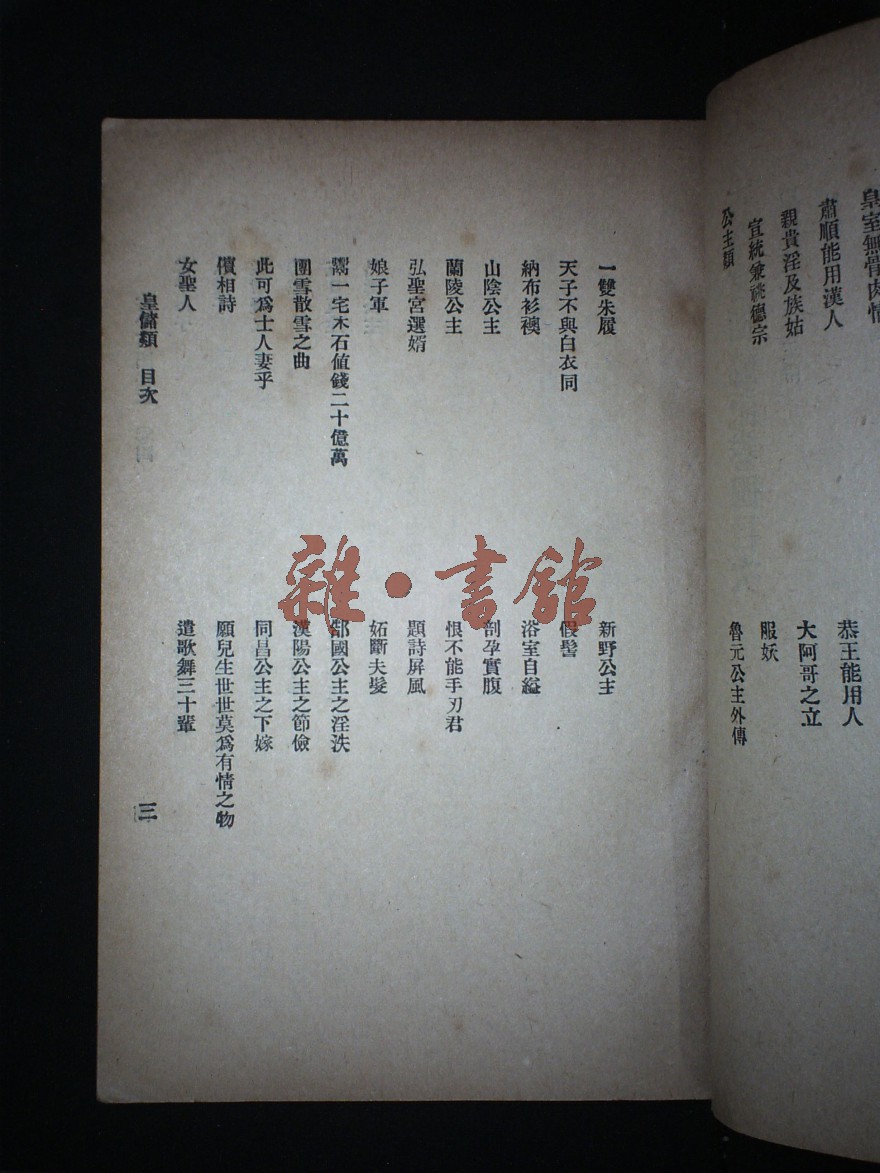 皇室無骨肉情
肅順能用漢人
恭王能用人
親貴淫及族姑
大阿哥之立
宣統兼祧德宗
服妖
公主類
魯元公主外傳
一雙朱履
新野公主
天子不與白衣同
假髻
納布衫襖
浴室自縊
山陰公主
剖孕實腹
蘭陵公主
恨不能手刃君
弘聖宮選婿
題詩屏風
娘子軍
妬斷夫髮
鬻一宅木石值錢二十億萬
郜國公主之淫泆
團雪散雪之曲
漢陽公主之節儉
此可爲士人妻乎
同昌公主之下嫁
儐相詩
願兒生世世莫爲有情之物
女聖人
遣歌舞三十輩
皇儲類 目次
三
雜·書館